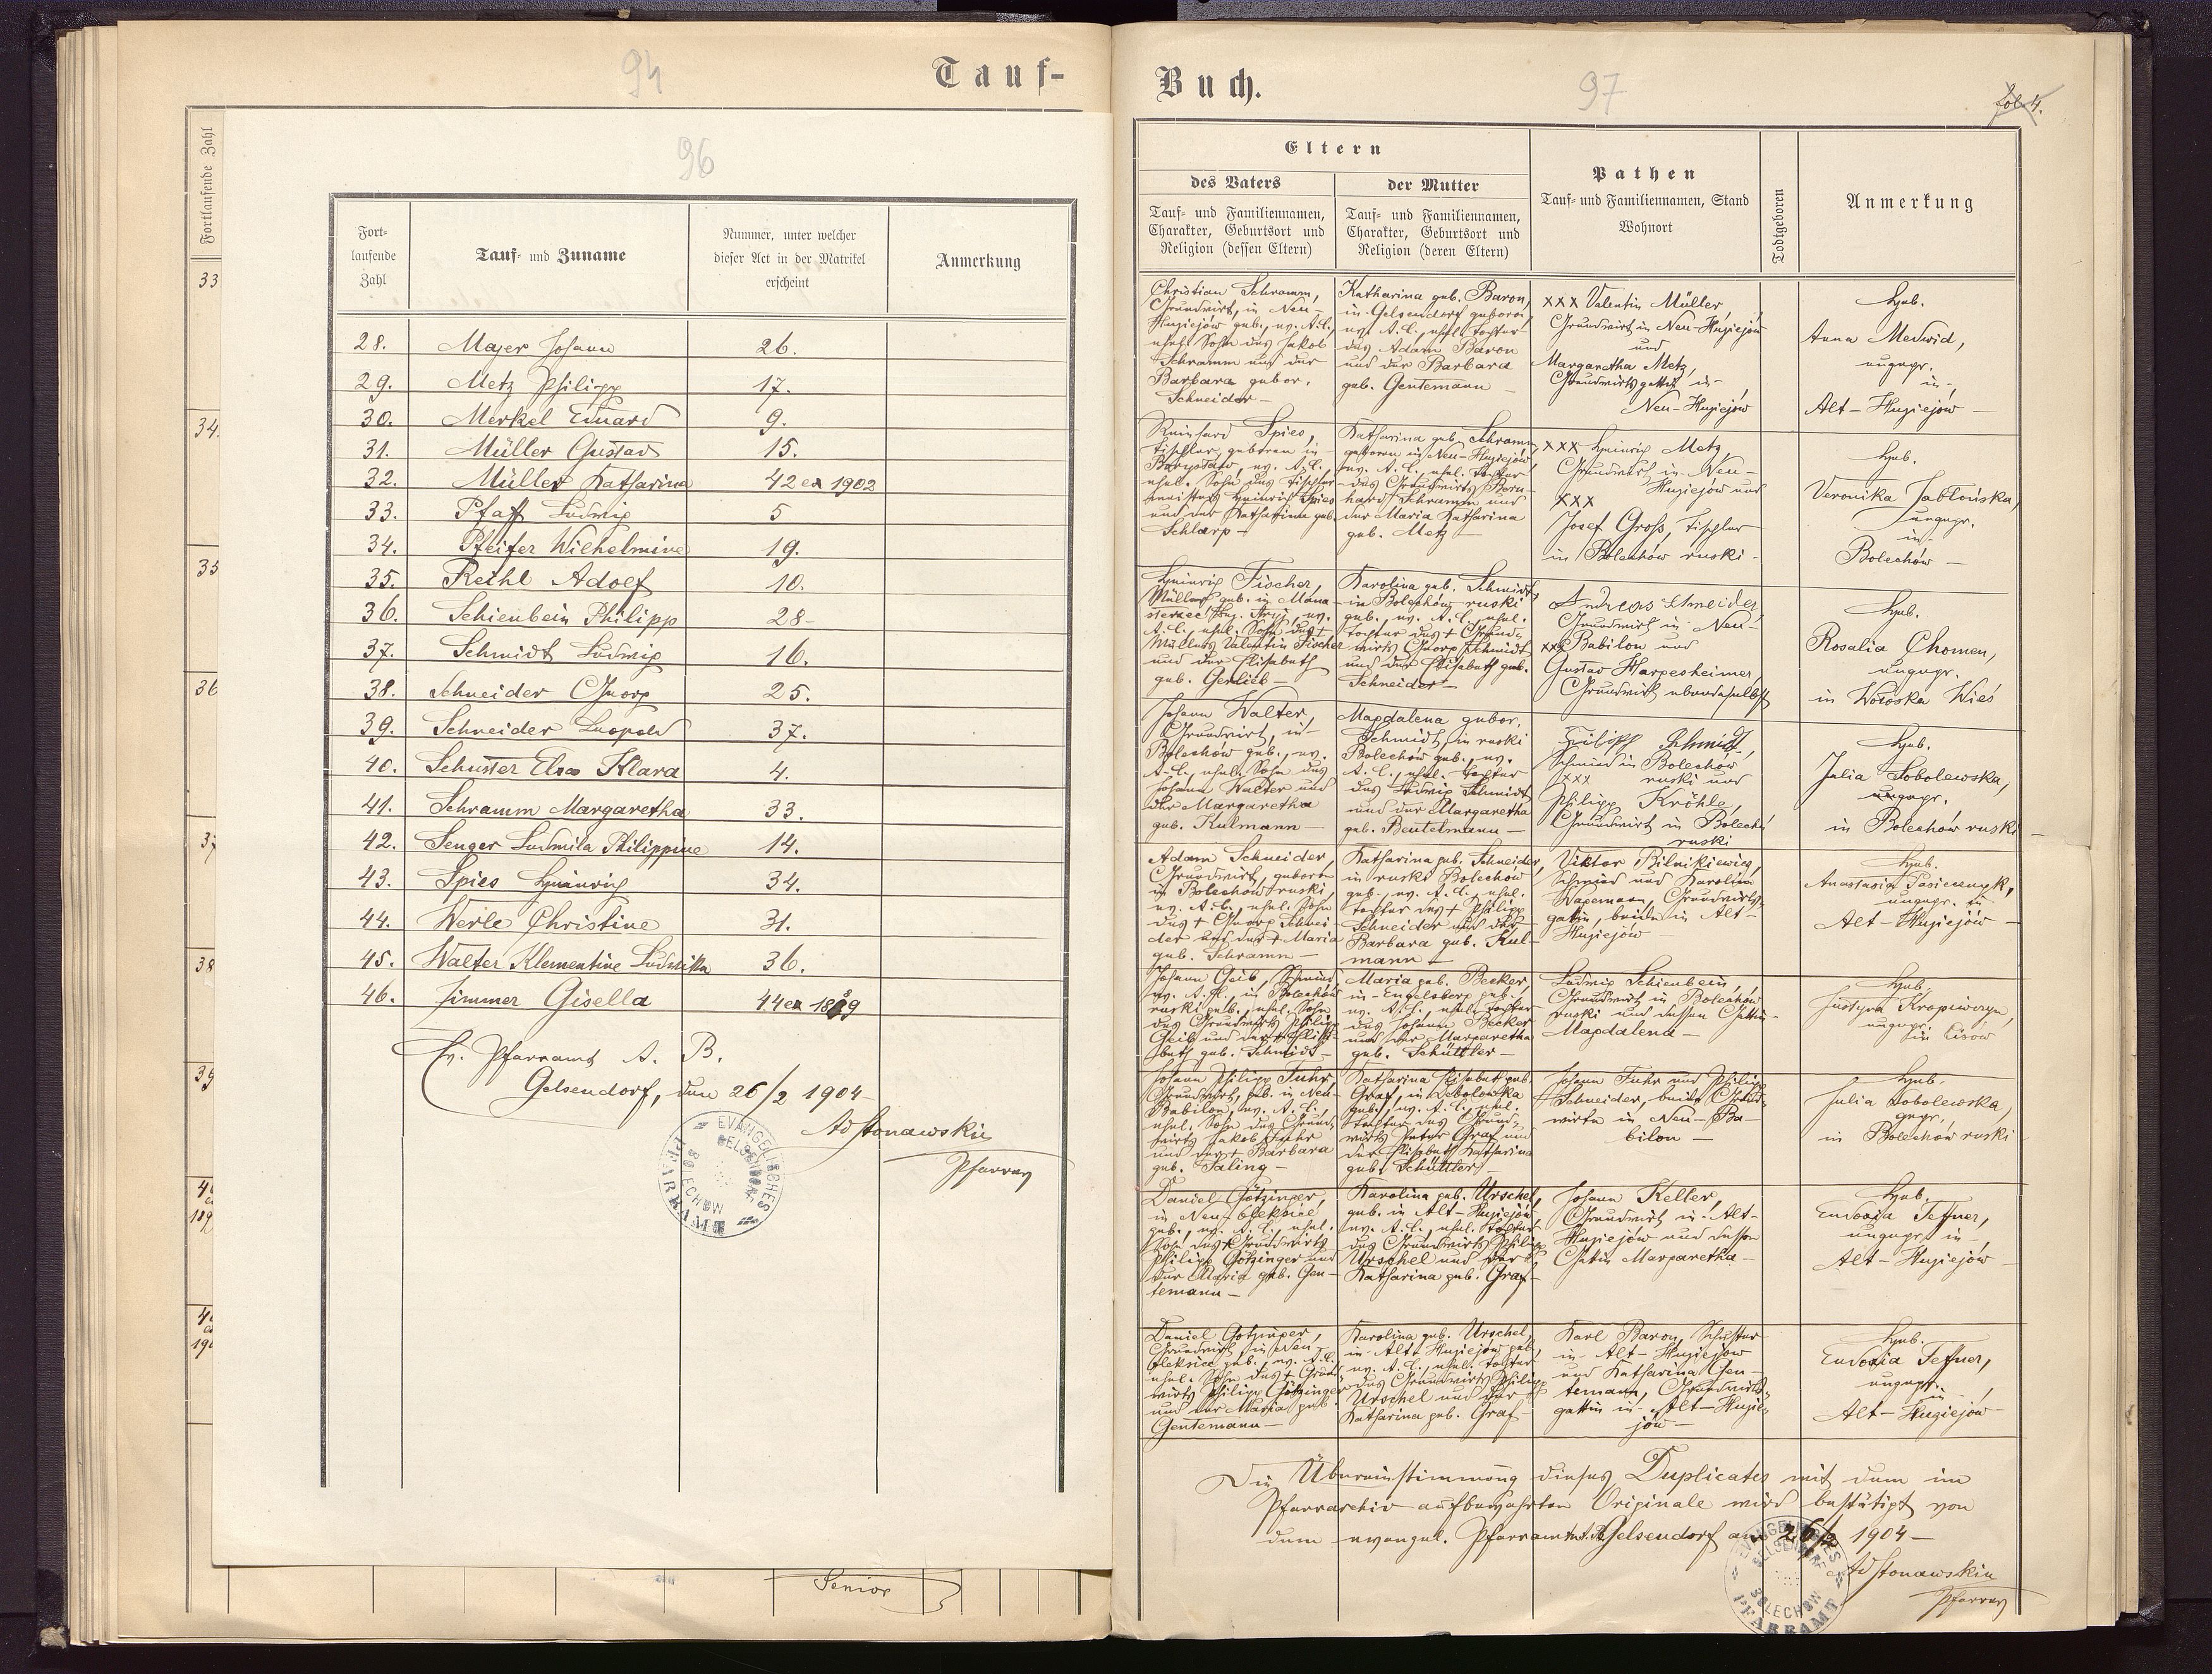 94
Tauf-
Fortlaufende Zahl
33
34.
35
36
37
38
39
96
Fort-
laufende
Zahl
Tauf- und Zuname
Nummer, unter welcher
dieser Act in der Matrikel
erscheint
Anmerkung
28. Majer Johann 26.
29. Metz Philipp 17.
30. Merkel Eduard 9.
31. Müller Gustav 15.
32. Müller Katharina 42 ex 1902
33. Pfaff Ludwig 5
34. Pfeifer Wilhelmine 19.
35. Reihl Adolf 10.
36. Schienbein Philipp 28-
37. Schmidt Ludwig 16.
38. Schneider Georg 25.
39. Schneider Leopold 37.
40. Schuster Elsa Klara 4.
41. Schramm Margaretha 33.
42. Senger Ludmila Philippine 14.
43. Spies Heinrich 34.
44. Werle Christine 31.
45. Walter Klementine Ludwika 36.
46. Zimmer Gisella 44 ex
Ev. Pfarramt A. B.
Gelsendorf, den 26/2 1904
Pfarrer
EVANGELISCHES
GELSENDORF
BOLECHOW
PFARRAMT
Senior
Buch.
97
fol. 4.
Eltern
des Vaters
Tauf- und Familiennamen,
Charakter, Geburtsort und
Religion (dessen Eltern)
der Mutter
Tauf- und Familiennamen,
Charakter, Geburtsort und
Religion (deren Eltern)
Pathen
Tauf- und Familiennamen, Stand
Wohnort
Todtgeboren
Anmerkung
Christian Schramm,
Grundwirt, in Neu-
Hujiejów geb., ev. A.C.,
ehel. Sohn des Jakob
Schramm und der
Barbara gebor.
Schneider –
Katharina geb. Baron,
in Gelsendorf geboren,
ev. A.C., ehel. Tochter
des Adam Baron
und der Barbara
geb. Gentemann –
xxx Valentin Müller,
Grundwirt in Neu-Hujiejów
und
Margaretha Metz,
Grundwirtsgattin in
Neu-Hujiejów
Heb.
Anna Medwid,
ungepr.
in
Alt-Hujiejów –
Reinhard Spies,
Tischler, geboren in
ev. A.C.,
ehel. Sohn des Tischler-
meisters Heinrich Spies
und der Katharina geb.
Schlarp –
Katharina geb. Schramm,
geboren in Neu-Hujiejów,
ev. A.C., ehel. Tochter
des Grundwirts Bern-
hard Schramm und
der Maria Katharina
geb. Metz –
xxx Heinrich Metz,
Grundwirt in Neu-
Hujiejów und
xxx
Josef Groß, Tischler
in Bolechów ruski –
Heb.
Veronika Jablońska,
ungepr.
in
Bolechów –
Heinrich Fischer,
Müller, geb. in Mona-
ev.
A.C., ehel. Sohn des †
Müllers Valentin Fischer
und der Elisabeth
geb. Gerlieb –
Karolina geb. Schmidt,
in Bolechów ruski
geb., ev. A.C., ehel.
Tochter des † Grund-
wirts Georg Schmidt
und der Elisabeth geb.
Schneider –
Andreas Schneider,
Grundwirt in Neu-
xxx Babilon und
Gustav Harpesheimer,
Grundwirt ebendaselbst
Heb.
Rosalia Chomen,
ungepr.
in Wołoska Wieś
Johann Walter,
Grundwirt, in
Bolechów geb., ev.
A.C., ehel. Sohn des
Johann Walter und
der Margaretha
geb. Kulmann –
Magdalena gebor.
Schmidt, in ruski
Bolechów geb., ev.
A.C., ehel. Tochter
des Ludwig Schmidt
und der Margaretha
geb. Beutelmann –
Filipp Schmidt,
Schmied in Bolechów
xxx ruski und
Philipp Kröhle,
Grundwirt in Bolechów
ruski
Heb.
Julia Sobolewska,
ungepr.
in Bolechów ruski –
Adam Schneider,
Grundwirt, geboren
in Bolechów ruski,
ev. A.C., ehel. Sohn
des † Georg Schnei-
der und der † Maria
geb. Schramm –
Katharina geb. Schneider,
in ruski Bolechów
geb., ev. A.C., ehel.
Tochter des † Philipp
Schneider und der
Barbara geb. Kul-
mann –
Viktor Bilnikiewicz,
Schmied und Karolina
Wagemann, Grundwirts-
gattin, beide in Alt-
Hujiejów –
Heb.
Anastasia Pasieczeyk,
ungepr. in
Alt-Hujiejów –
Johann Geib, Schmied,
ev. A.C., in Bolechów
ruski geb., ehel. Sohn
des Grundwirts Philipp
Geib und der † Elisa-
beth geb. Schmidt –
Maria geb. Becker,
in Engelsberg geb.,
ev. A.C., ehel. Tochter
des Johann Becker
und der Margaretha
geb. Schüttler –
Ludwig Schienbein,
Grundwirt in Bolechów
ruski und dessen Gattin
Magdalena –
Heb.
ungepr.
in Cisów
Johann Philipp Fuhr,
Grundwirt, geb. in Neu-
Babilon, ev. A.C.,
ehel. Sohn des Grund-
wirts Jakob Fuhr
und der † Barbara
geb. Saling –
Katharina Elisabeth geb.
Graf, in Debolowka
geb., ev. A.C., ehel.
Tochter des Grund-
wirts Peter Graf und
der Elisabeth Katharina
geb. Schüttler –
Johann Fuhr und Philipp
Schneider, beide Grund-
wirte in Neu-Ba-
bilon –
Heb.
Julia Sobolewska,
gepr.
in Bolechów ruski
Daniel Götzinger,
in Neu-Oleksice
geb., ev. A.C., ehel.
Sohn des † Grundwirts
Philipp Götzinger und
der Maria geb. Gen-
temann –
Karolina geb. Urschel,
geb. in Alt-Hujiejów,
ev. A.C., ehel. Tochter
des Grundwirts Philipp
Urschel und der
Katharina geb. Graf –
Johann Keller,
Grundwirt in Alt-
Hujiejów und dessen
Gattin Margaretha –
Heb.
Eudoxia Teffner,
ungepr. in
Alt-Hujiejów –
Daniel Götzinger,
Grundwirt, in Neu-
Oleksice geb., ev. A.C.
ehel. Sohn des † Grund-
wirts Philipp Götzinger
und der Maria geb.
Gentemann –
Karolina geb. Urschel,
in Alt-Hujiejów geb.,
ev. A.C., ehel. Tochter
des Grundwirts Philipp
Urschel und der
Katharina geb. Graf –
Karl Baron, Schuster
in Alt-Hujiejów
und Katharina Gen-
temann, Grundwirts-
gattin in Alt-Hujie-
jów –
Heb.
Eudoxia Teffner,
ungepr.
in
Alt-Hugiejów
Die Übereinstimmung dieses Duplicates mit dem im
Pfarrarchiv aufbewahrten Originale wird bestätigt von
dem evangel. Pfarramt A.B. Gelsendorf am 26/2 1904 –
Pfarrer
EVANGELISCHES
GELSENDORF
BOLECHOW
PFARRAMT